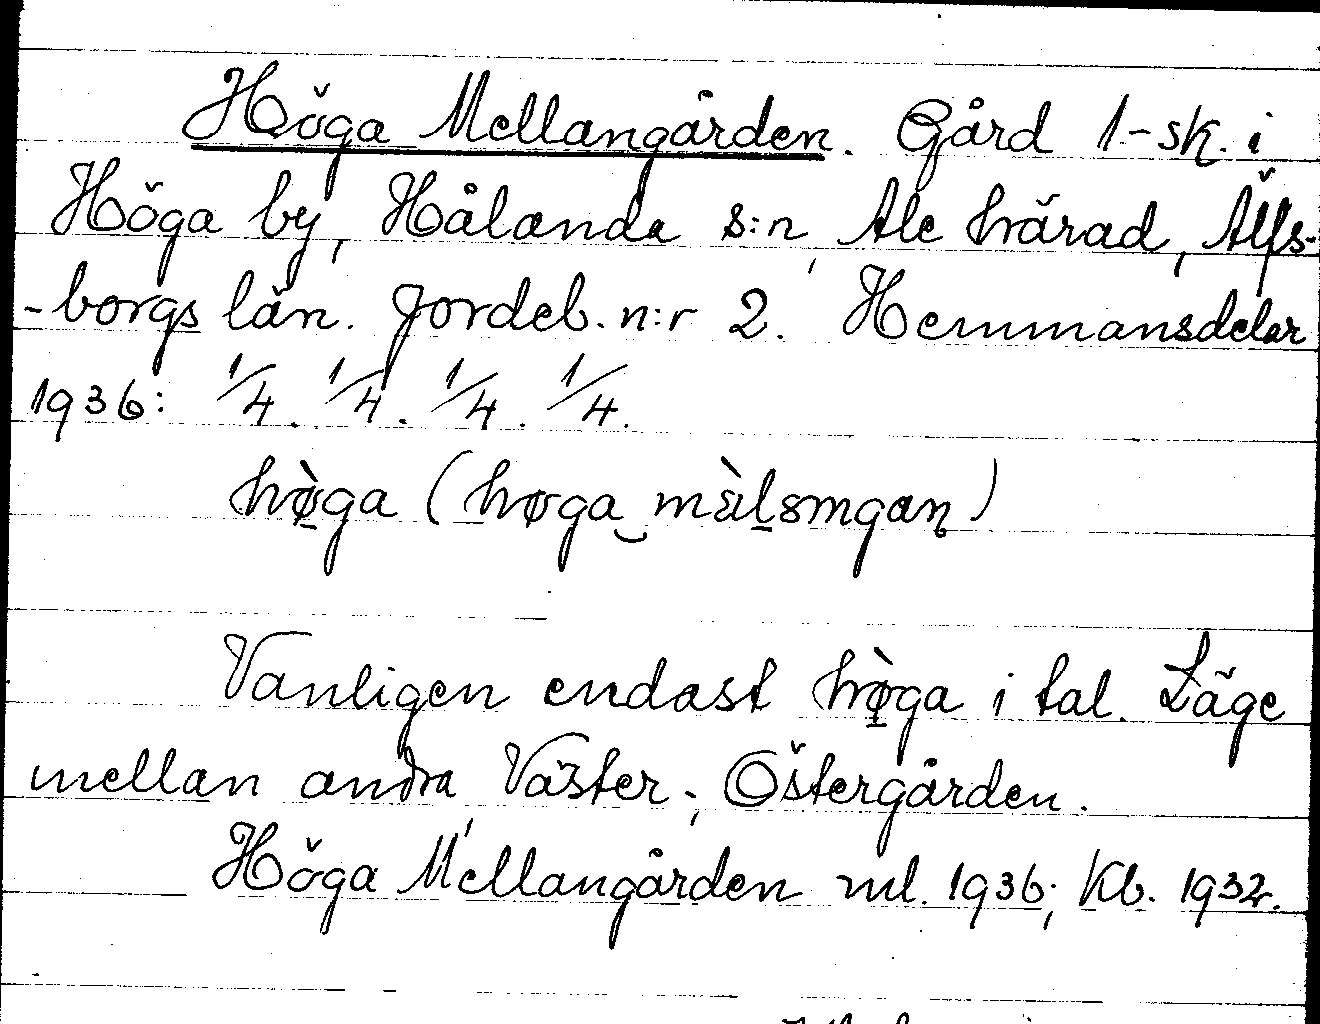 Höga Mellangården. Gård 1-sk. i
Höga by, Hålanda s:n, Ale härad, Älfs-
-borgs län. Jordeb. n:r 2. Hemmansdelar
1936: 1/4. 1/4. 1/4. 1/4.
hø̀ga (høga
Vanligen endast hø̀ga i tal. Läge
mellan andra, Väster-, Östergården.
Höga Mellangården ml. 1936; Kb. 1932.